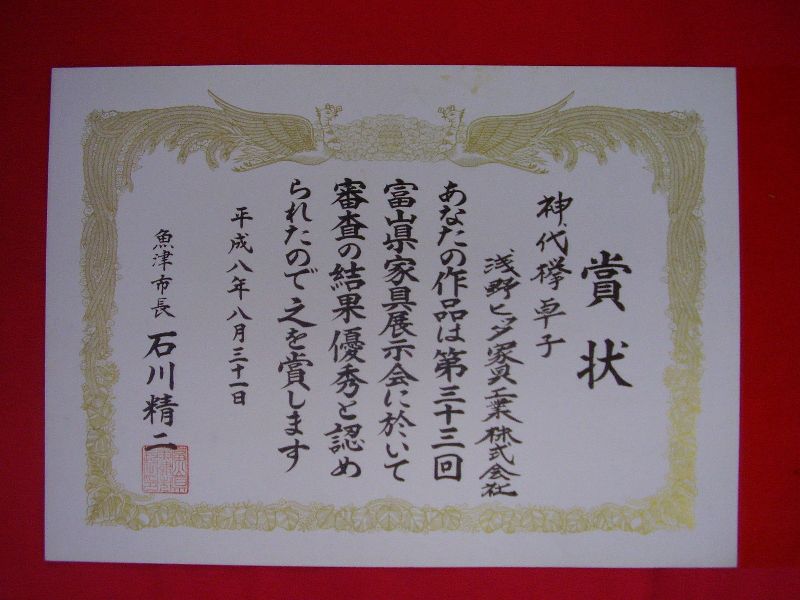 賞状
神代欅卓子
浅野ヒダ家具工業株式会社
あなたの作品は第三十三回
富山県家具展示会に於いて
審査の結果優秀と認め
られたので之を賞します
平成八年八月三十一日
魚津市長 石川精二